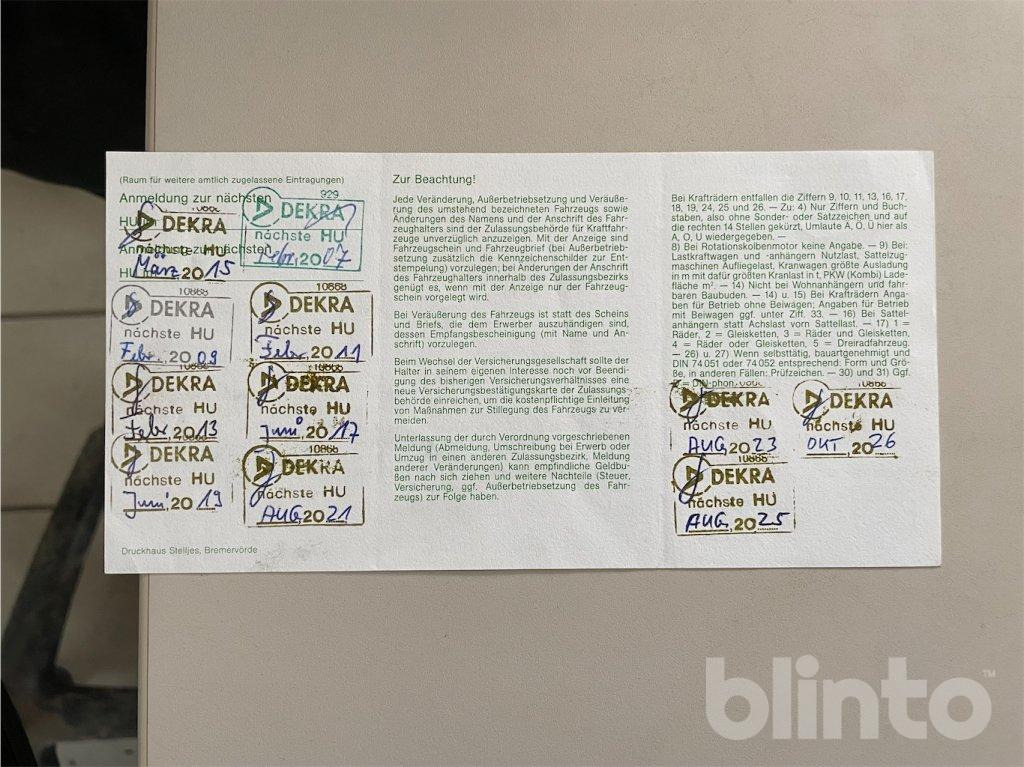 (Raum für weitere amtlich zugelassene Eintragungen)
Anmeldung zur nächsten
HU
DEKRA
nächste HU
März 2015
929
DEKRA
nächste HU
Febr. 2007
10868
DEKRA
nächste HU
Febr. 2009
10868
DEKRA
nächste HU
Febr. 2011
DEKRA
nächste HU
Febr. 2013
10868
DEKRA
nächste HU
Juni 2017
DEKRA
nächste HU
Juni 2019
10868
DEKRA
nächste HU
AUG. 2021
Druckhaus Stelljes, Bremervörde
Zur Beachtung!
Jede Veränderung, Außerbetriebsetzung und Veräuße-
rung des umstehend bezeichneten Fahrzeugs sowie
Änderungen des Namens und der Anschrift des Fahr-
zeughalters sind der Zulassungsbehörde für Kraftfahr-
zeuge unverzüglich anzuzeigen. Mit der Anzeige sind
Fahrzeugschein und Fahrzeugbrief (bei Außerbetrieb-
setzung zusätzlich die Kennzeichenschilder zur Ent-
stempelung) vorzulegen; bei Änderungen der Anschrift
des Fahrzeughalters innerhalb des Zulassungsbezirks
genügt es, wenn mit der Anzeige nur der Fahrzeug-
schein vorgelegt wird.
Bei Veräußerung des Fahrzeugs ist statt des Scheins
und Briefs, die dem Erwerber auszuhändigen sind,
dessen Empfangsbescheinigung (mit Name und An-
schrift) vorzulegen.
Beim Wechsel der Versicherungsgesellschaft sollte der
Halter in seinem eigenen Interesse noch vor Beendi-
gung des bisherigen Versicherungsverhältnisses eine
neue Versicherungsbestätigungskarte der Zulassungs-
behörde einreichen, um die kostenpflichtige Einleitung
von Maßnahmen zur Stillegung des Fahrzeugs zu ver-
meiden.
Unterlassung der durch Verordnung vorgeschriebenen
Meldung (Abmeldung, Umschreibung bei Erwerb oder
Umzug in einen anderen Zulassungsbezirk, Meldung
anderer Veränderungen) kann empfindliche Geldbu-
ßen nach sich ziehen und weitere Nachteile (Steuer,
Versicherung, ggf. Außerbetriebsetzung des Fahr-
zeugs) zur Folge haben.
Bei Krafträdern entfallen die Ziffern 9, 10, 11, 13, 16, 17,
18, 19, 24, 25 und 26. — Zu: 4) Nur Ziffern und Buch-
staben, also ohne Sonder- oder Satzzeichen und auf
die rechten 14 Stellen gekürzt, Umlaute Ä, Ö, Ü hier als
A, O, U wiedergegeben. —
8) Bei Rotationskolbenmotor keine Angabe. — 9) Bei
Lastkraftwagen und -anhängern Nutzlast, Sattelzug-
maschinen Aufliegelast, Kranwagen größte Ausladung
in m mit dafür größten Kranlast in t, PKW (Kombi) Lade-
fläche m². — 14) Nicht bei Wohnanhängern und fahr-
baren Baubuden. — 14) u. 15) Bei Krafträdern Anga-
ben für Betrieb ohne Beiwagen; Angaben für Betrieb
mit Beiwagen ggf. unter Ziff. 33. — 16) Bei Sattel-
anhängern statt Achslast vorn Sattellast. — 17) 1 =
Räder, 2 = Gleisketten, 3 = Räder und Gleisketten,
4 = Räder oder Gleisketten, 5 = Dreiradfahrzeug.
— 26) u. 27) Wenn selbsttätig, bauartgenehmigt und
DIN 74 051 oder 74 052 entsprechend: Form und Grö-
ße, in anderen Fällen: Prüfzeichen. — 30) und 31) Ggf.
= DIN-phon.
DEKRA
nächste HU
AUG. 2023
10868
DEKRA
nächste HU
OKT. 2026
DEKRA
nächste HU
AUG. 2025
blinto™